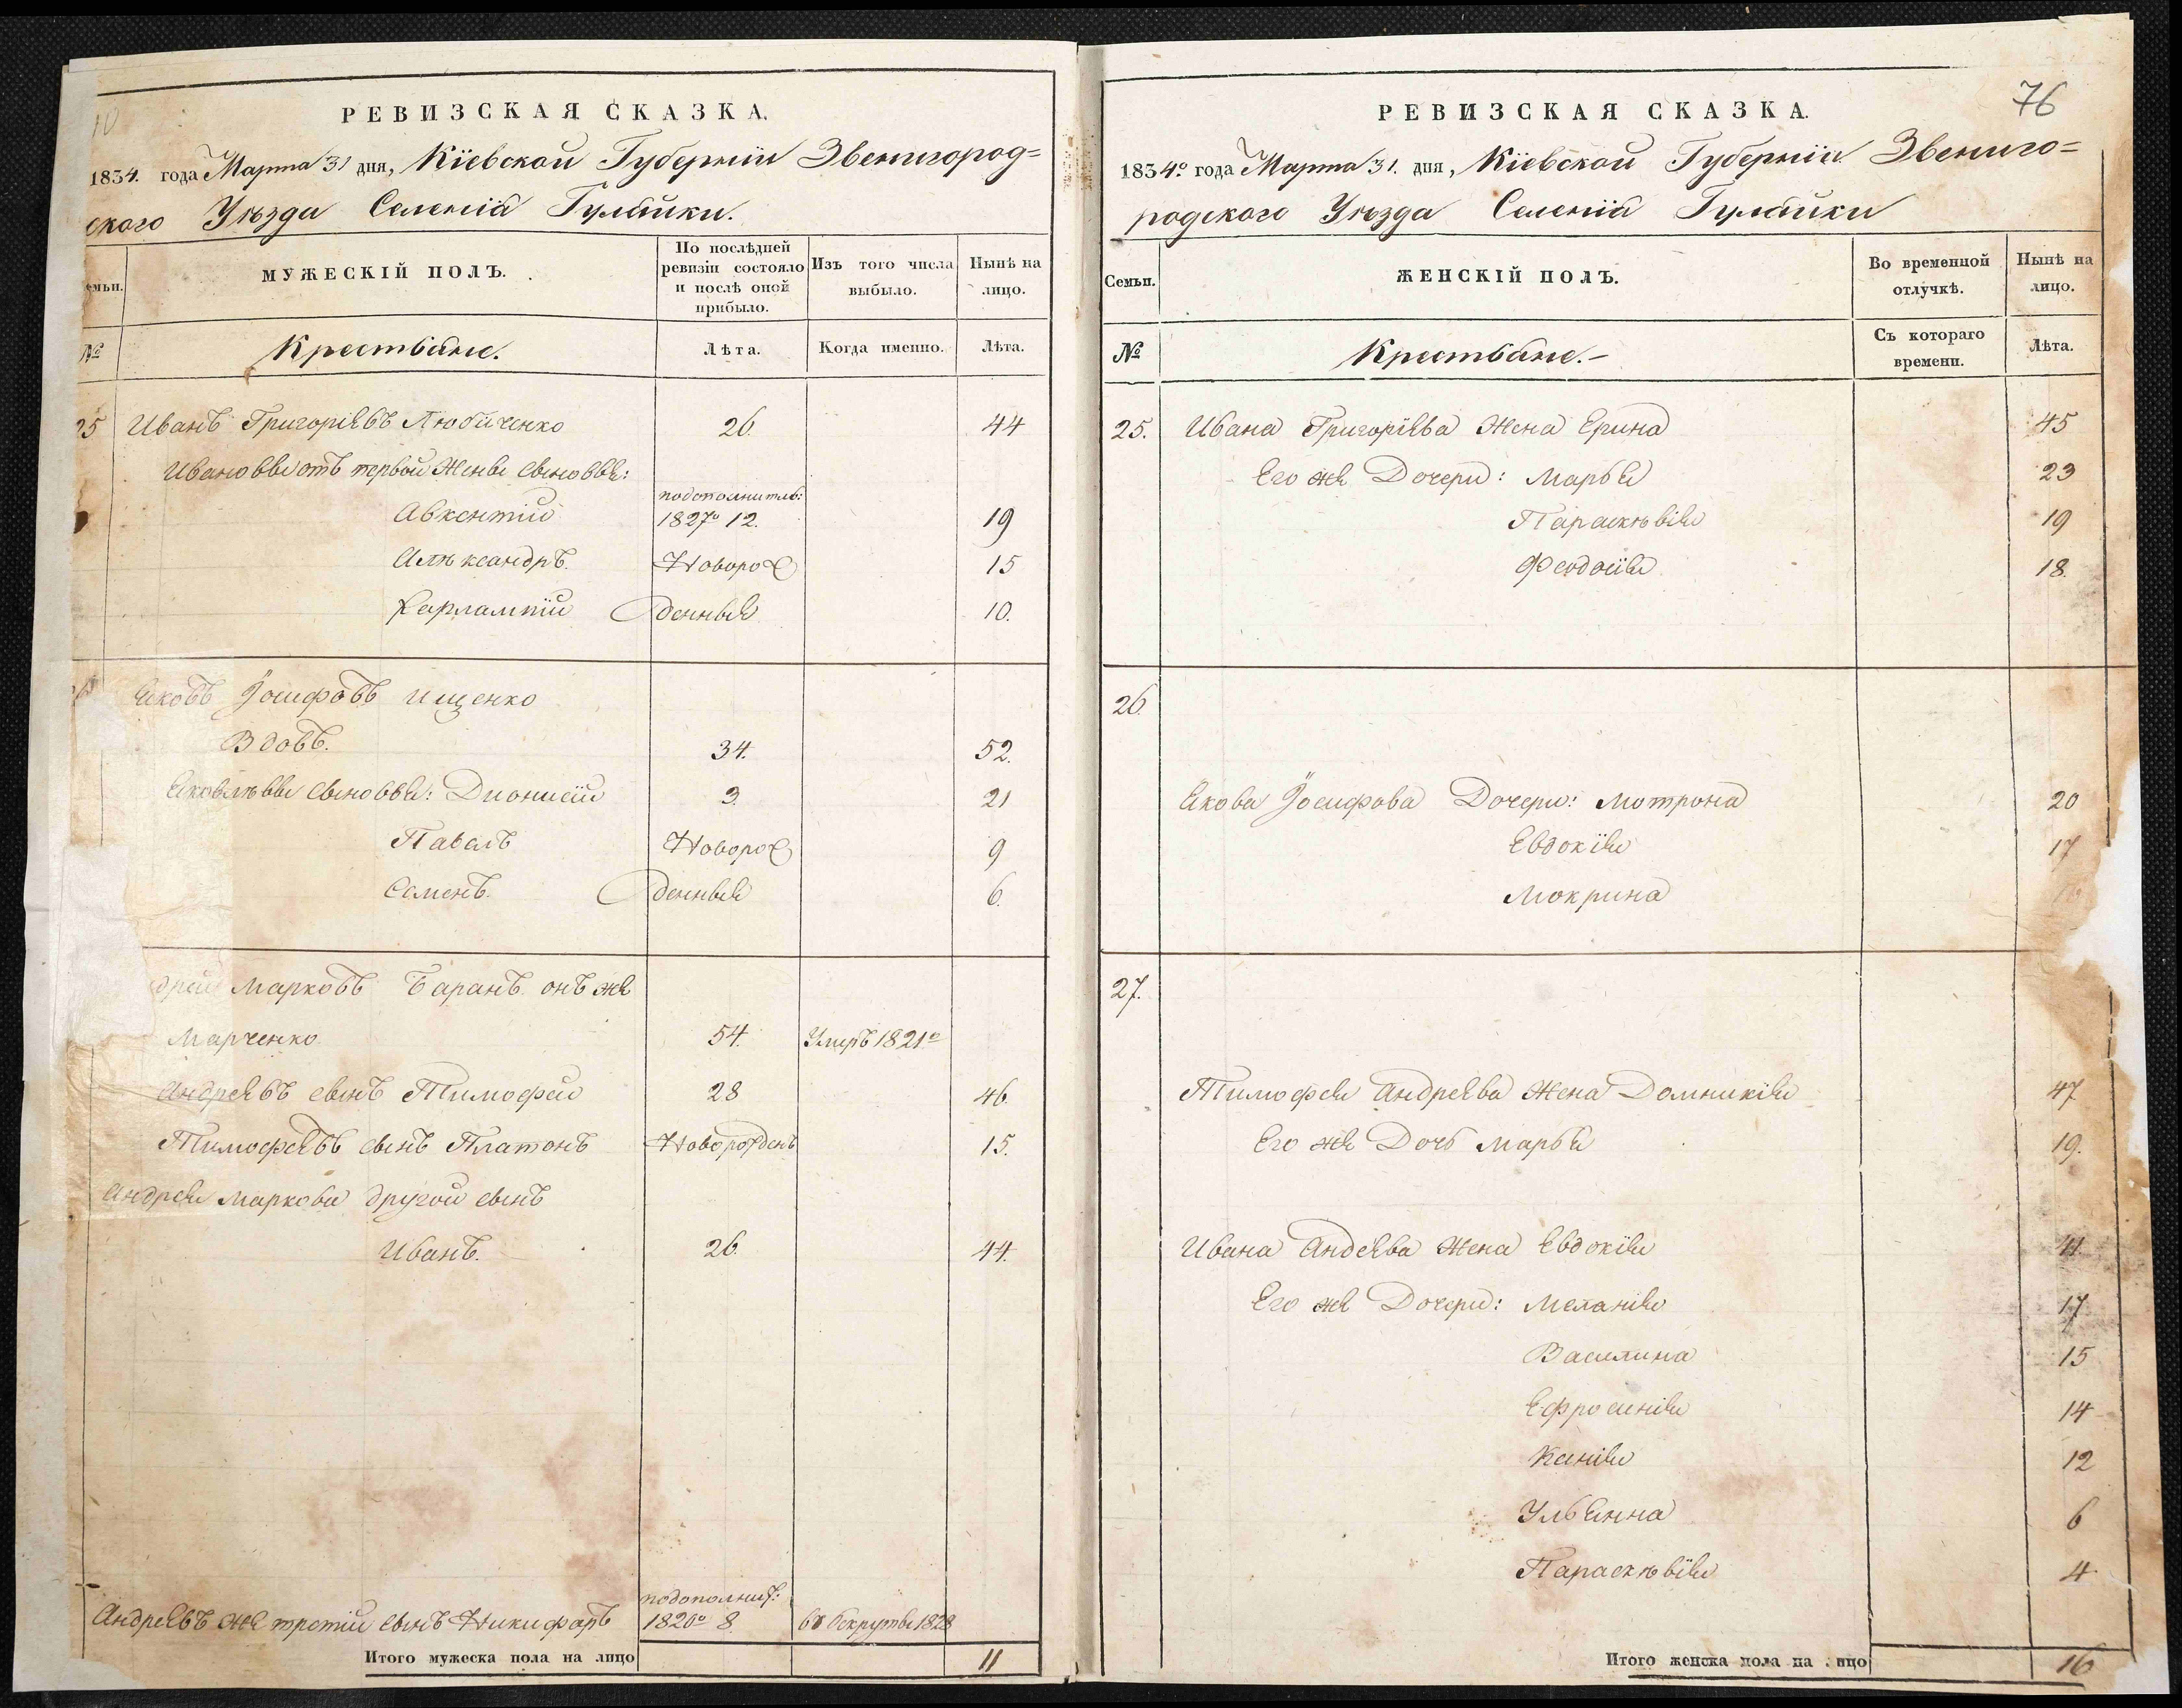 10
РЕВИЗСКАЯ СКАЗКА.
1834. года Марта 31 дня, Кіевской Губерніи Звенигород=
ского Уѣзда Селенія Гулайки.
емьи.
МУЖЕСКІЙ ПОЛЪ.
По послѣдней ревизіи состояло и послѣ оной прибыло.
Изъ того числа выбыло.
Нынѣ на лицо.
№
Крестьяне.
Лѣта.
Когда именно.
Лѣта.
25 Иванъ Григоріевъ Любиченко 26. 44
Ивановы отъ первой жены сыновья:
Авксентій подополнитель: 1827º 12. 19
Алѣксандръ. Новорож 15
Харлампій денные 10.
Яковъ Іосифовъ Ищенко
Вдовъ. 34. 52.
Яковлѣвы сыновья: Дионисій 3. 21
Павелъ Новорож 9
Семенъ. денные 6.
дрей Марковъ Баранъ онъ же
Марченко 54. Умеръ 1821º
Андреевъ сынъ Тимофей 28 46.
Тимофеевъ сынъ Платонъ Новорожденъ 15.
Андрея Маркова другой сынъ
Иванъ. 26. 44.
Андреевъ же третій сынъ Никифоръ подополнит: 1826º 8. въ бекруты 1828
Итого мужеска пола на лицо 11
76
РЕВИЗСКАЯ СКАЗКА.
1834º года Марта 31. дня, Кіевской Губерніи Звениго=
родского Уѣзда Селенія Гулайки
Семьи.
ЖЕНСКІЙ ПОЛЪ.
Во временной отлучкѣ.
Нынѣ на лицо.
№
Крестьяне.-
Съ котораго времени.
Лѣта.
25. Ивана Григоріева Жена Ерина 45
Его же Дочери: Марья 23
Параскѣвія 19
Феодосія 18.
26.
Якова Іосифова Дочери: Мотрона 20
Евдокія 17
Мокрина
27.
Тимофея Андреева Жена Домникія 47
Его же Дочь Марья 19.
Ивана Андеева Жена Евдокія 41.
Его же Дочери: Меланія 17
Василина 15
Ефросинія 14
Ксенія 12
Ульянна 6
Параскѣвія 4
Итого женска пола на лицо 16